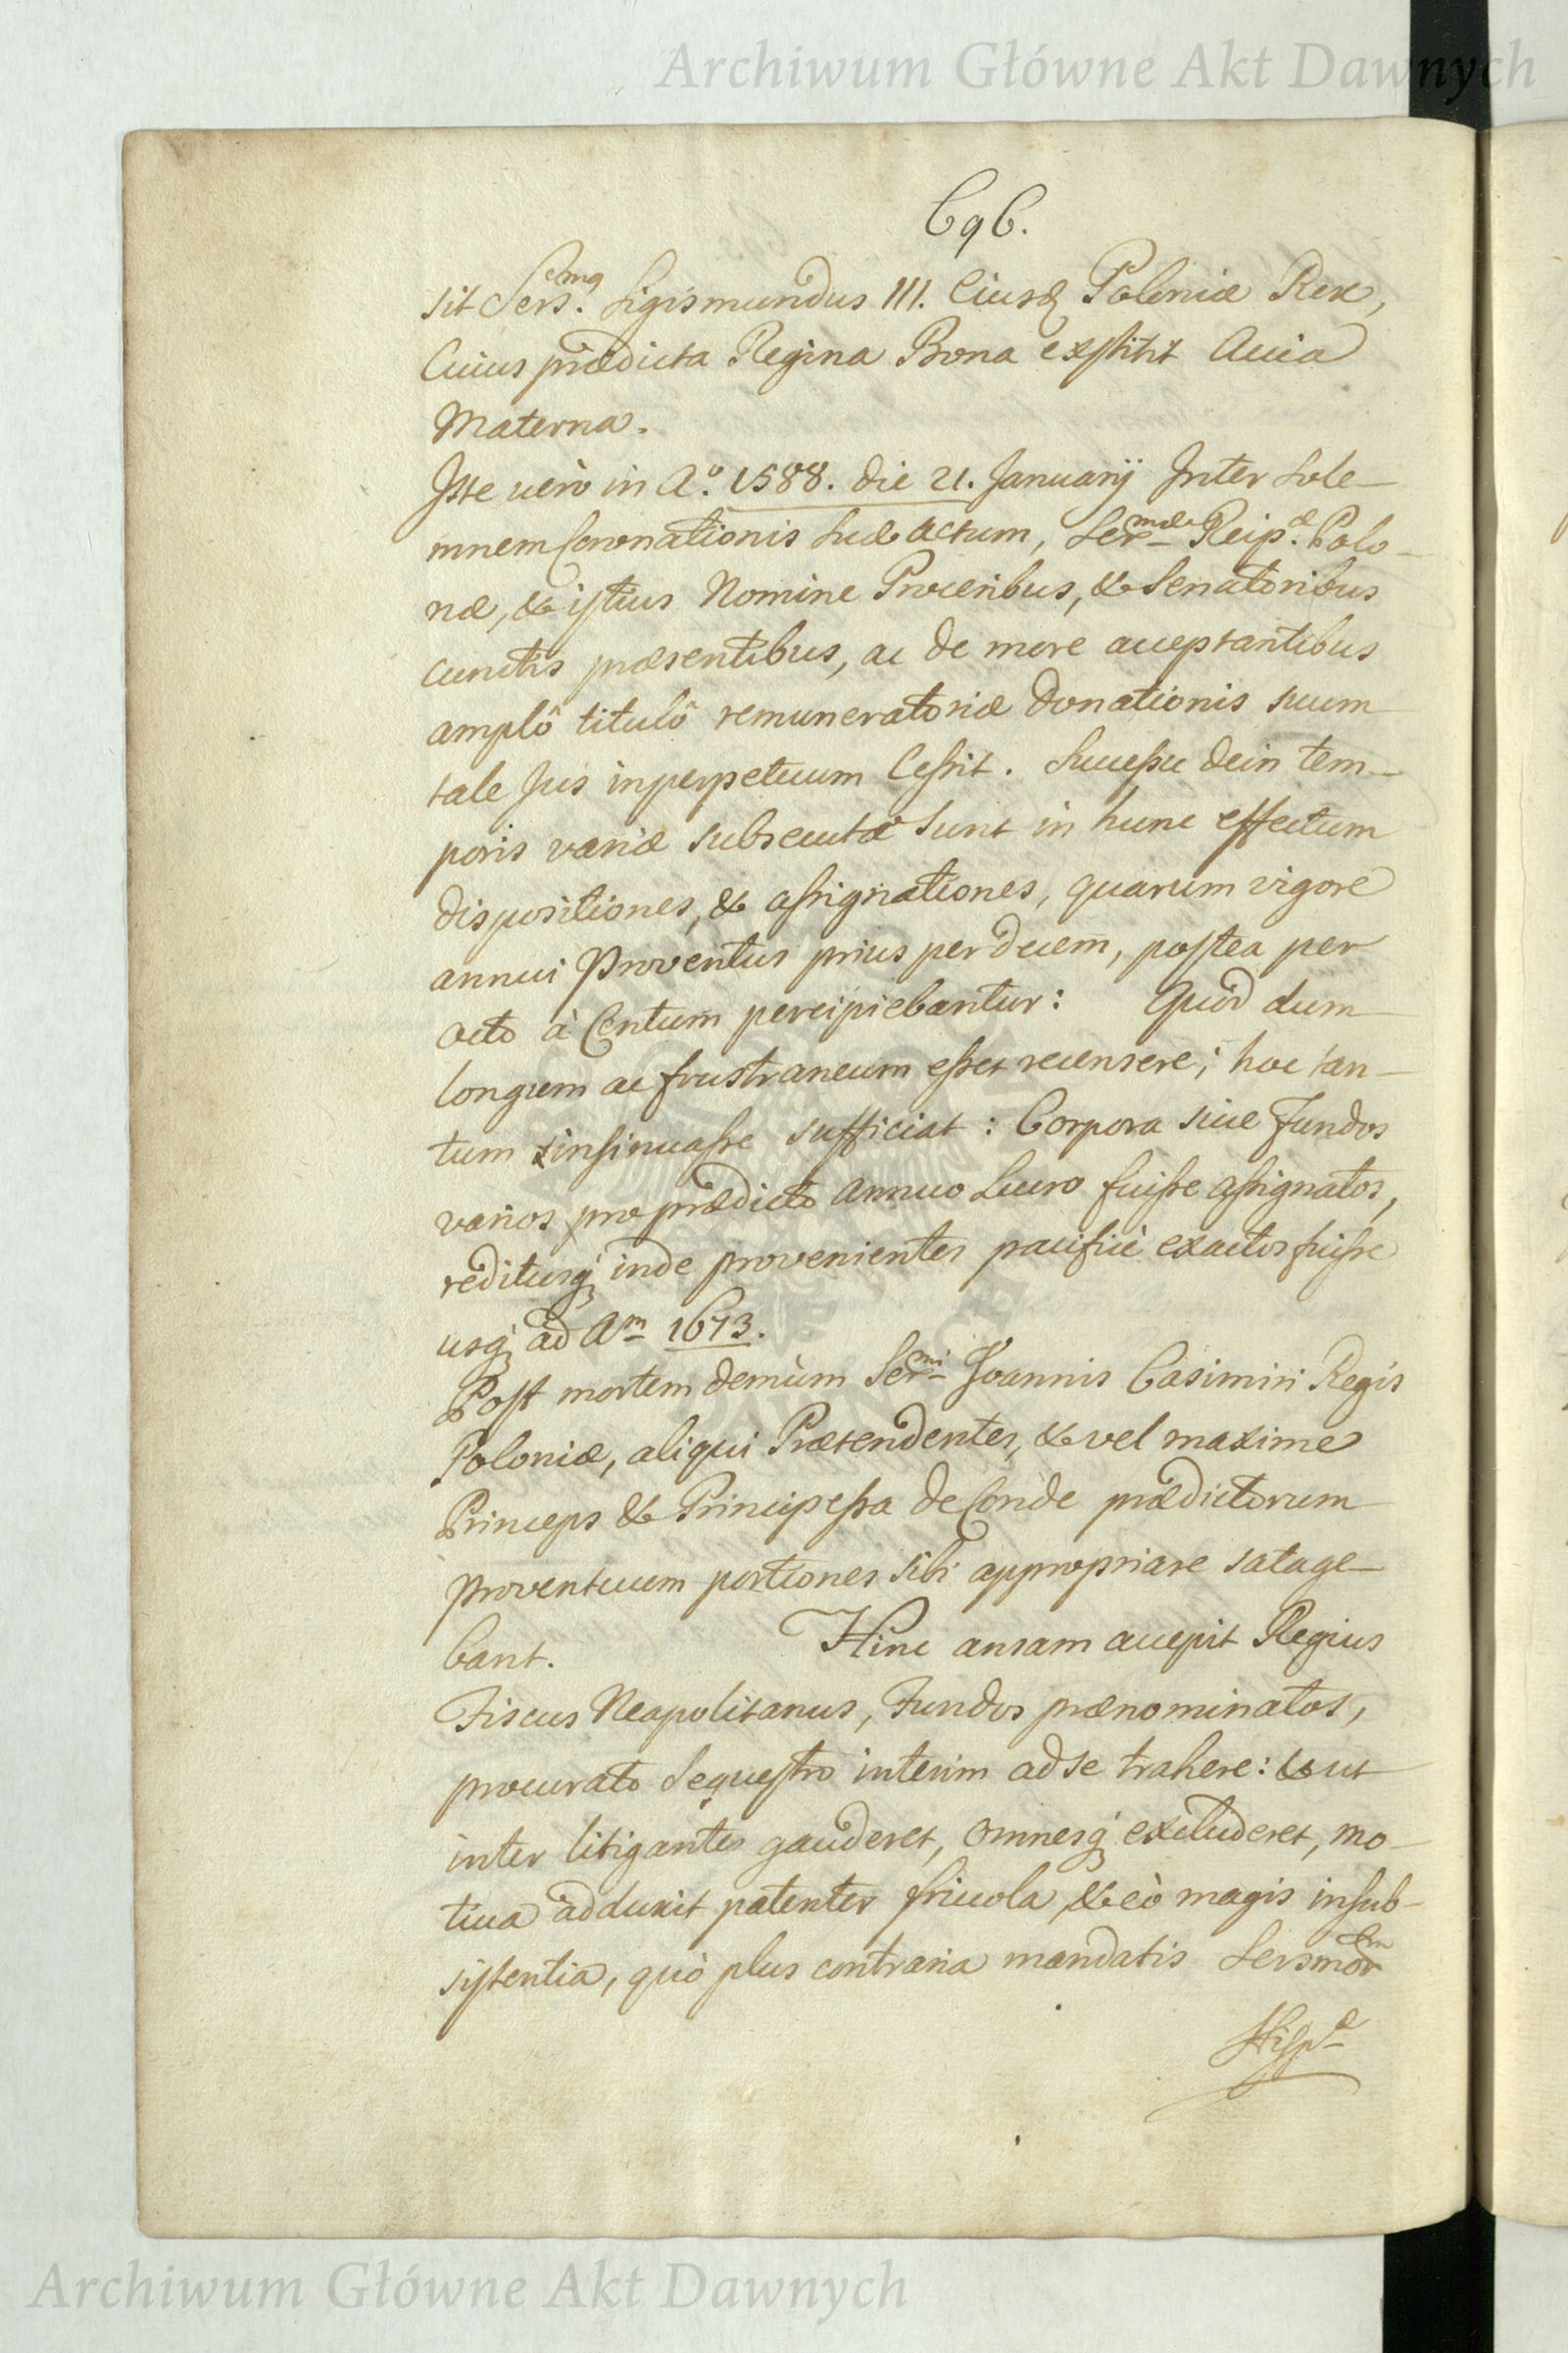 Archiwum Główne Akt Dawnych
696.
sit Sers.mq Sigismundus III. Eiusd Poloniæ Rex,
Cuius prædicta Regina Bona exstitit Auia
Materna.
Iste verò in Aº. 1588. die 21. Januarij Inter Sole-
mnem Coronationis suæ actum, Sermæ Reip.æ Polo-
næ, & istius Nomine Proceribus, & Senatoribus
cunctis præsentibus, ac de more acceptantibus
amplô titulô remuneratoriæ donationis suum
tale Jus in perpetuum Cessit. Successu dein tem-
poris variæ subsecutæ sunt in hunc effectum
dispositiones, & assignationes, quarum vigore
annui Proventus prius per decem, postea per
octo à Centum percipiebantur: Quod dum
longum ac frustraneum esset recensere; hoc tan-
tum insinuasse sufficiat: Corpora siue Fundos
varios pro prædicto annuo Lucro fuisse assignatos,
reditusq; inde provenientes pacificè exactos fuisse
usq; ad Am 1673.
Post mortem demùm Sermi Joannis Casimiri Regis
Poloniæ, aliqui Prætendentes, & vel maxime
Princeps & Principessa de Conde prædictorum
proventuum portiones sibi appropriare satage-
bant. Hinc ansam accepit Regius
Fiscus Neapolitanus, Fundos prænominatos,
procurato Sequestro interim ad se trahere: & ut
inter litigantes gauderet, omnesq; excluderet, mo-
tiua adduxit patenter friuola, & eò magis insub-
sistentia, quò plus contraria mandatis Sersmorm
Hispæ
Archiwum Główne Akt Dawnych